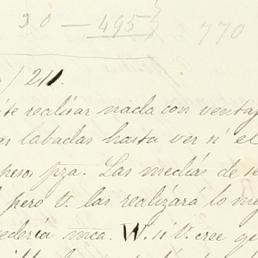 30 — 495
770
/ 211.
te realizar nada con ventaj
as labadas hasta ver si el
peso pza. Las medias de se
pero V. las realizará lo mej
ederia mca. W. si V. cree qe